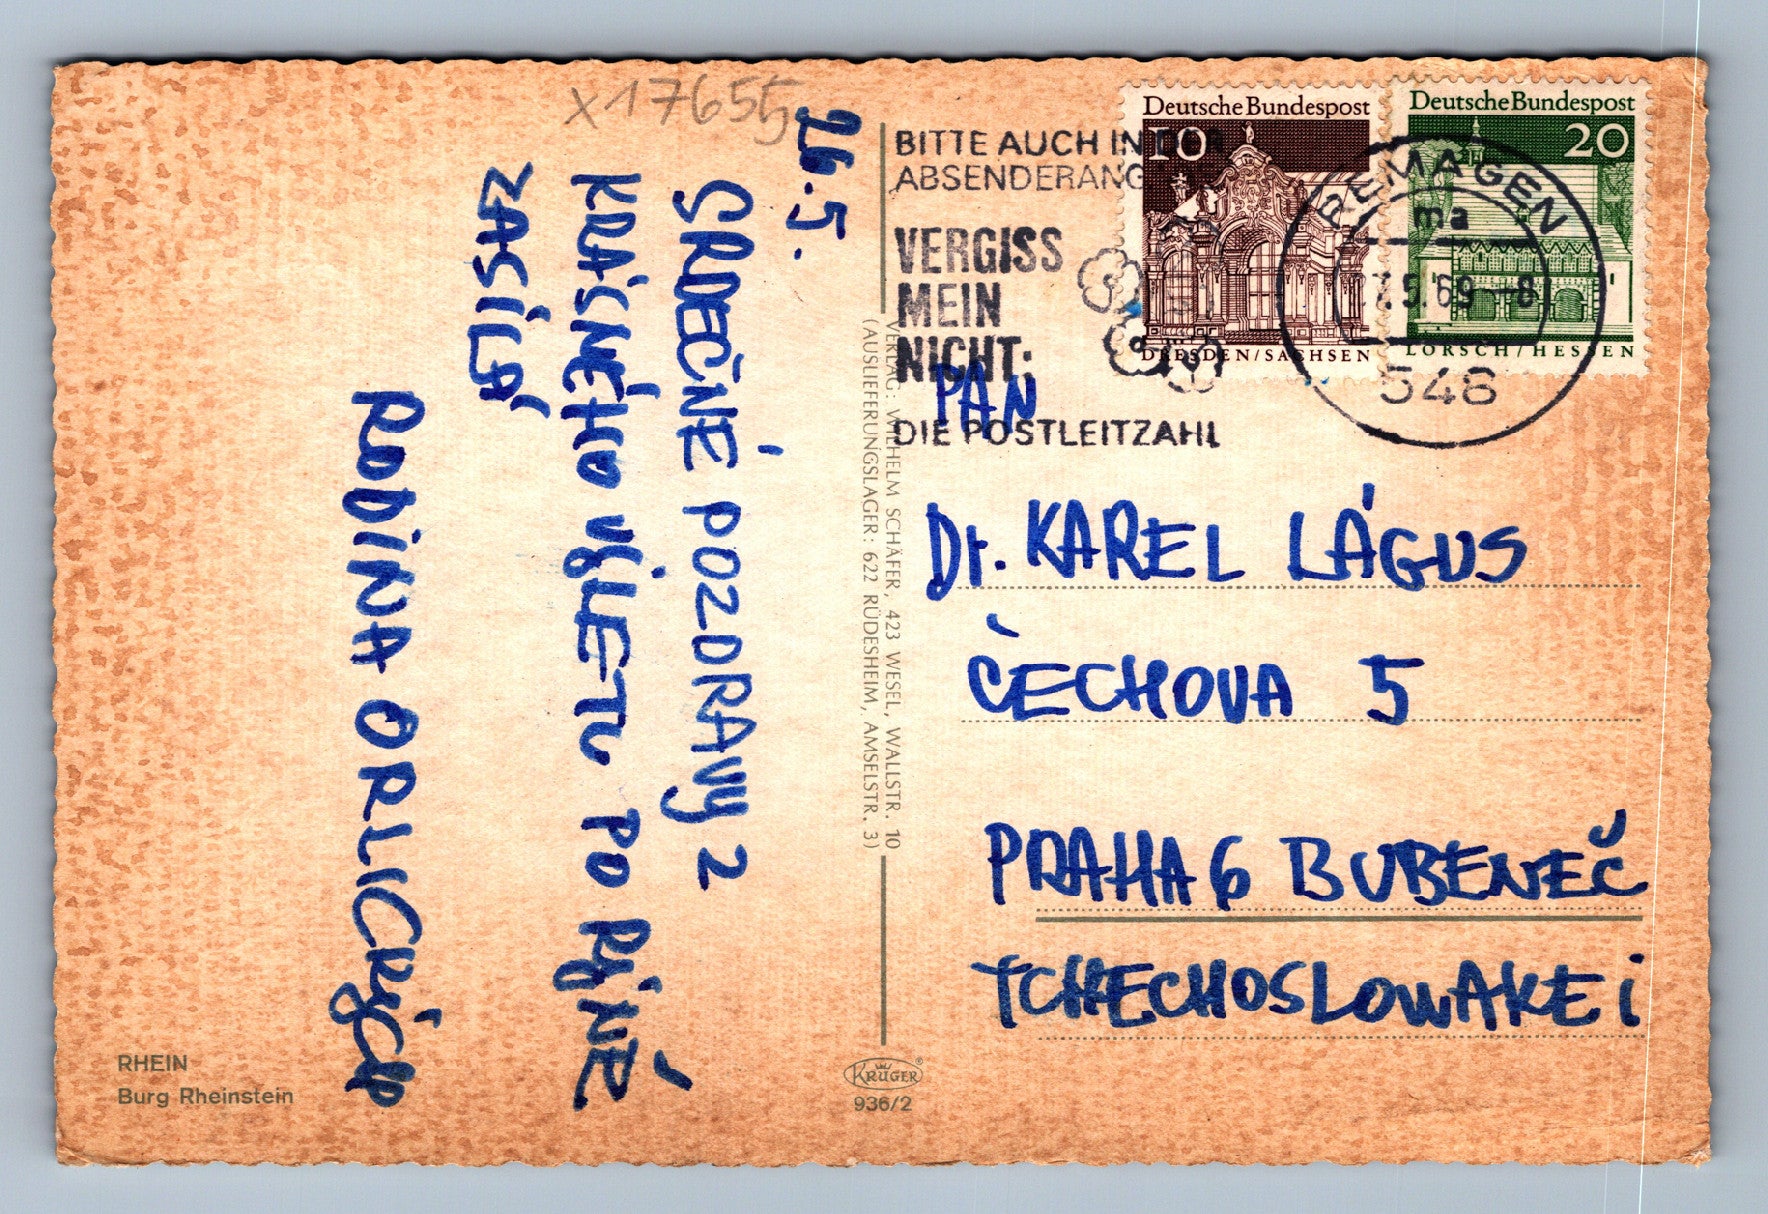 x17655
26.5.
SRDEČNÉ POZDRAVY Z
KRÁSNÉHO VÝLETU PO RÝNĚ
ZASÍLÁ
RODINA ORLICKÝCH
RHEIN
Burg Rheinstein
VERLAG: WILHELM SCHÄFER, 423 WESEL, WALLSTR. 10
(AUSLIEFERUNGSLAGER: 622 RÜDESHEIM, AMSELSTR. 3)
KRÜGER®
936/2
BITTE AUCH IN DER
ABSENDERANG
VERGISS
MEIN
NICHT:
DIE POSTLEITZAHL
Deutsche Bundespost
10
DRESDEN/SACHSEN
Deutsche Bundespost
20
LORSCH/HESSEN
REMAGEN
ma
7.5.69-8
548
PAN
Dr. KAREL LÁGUS
ČECHOVA 5
PRAHA 6 BUBENEČ
TCHECHOSLOWAKEi